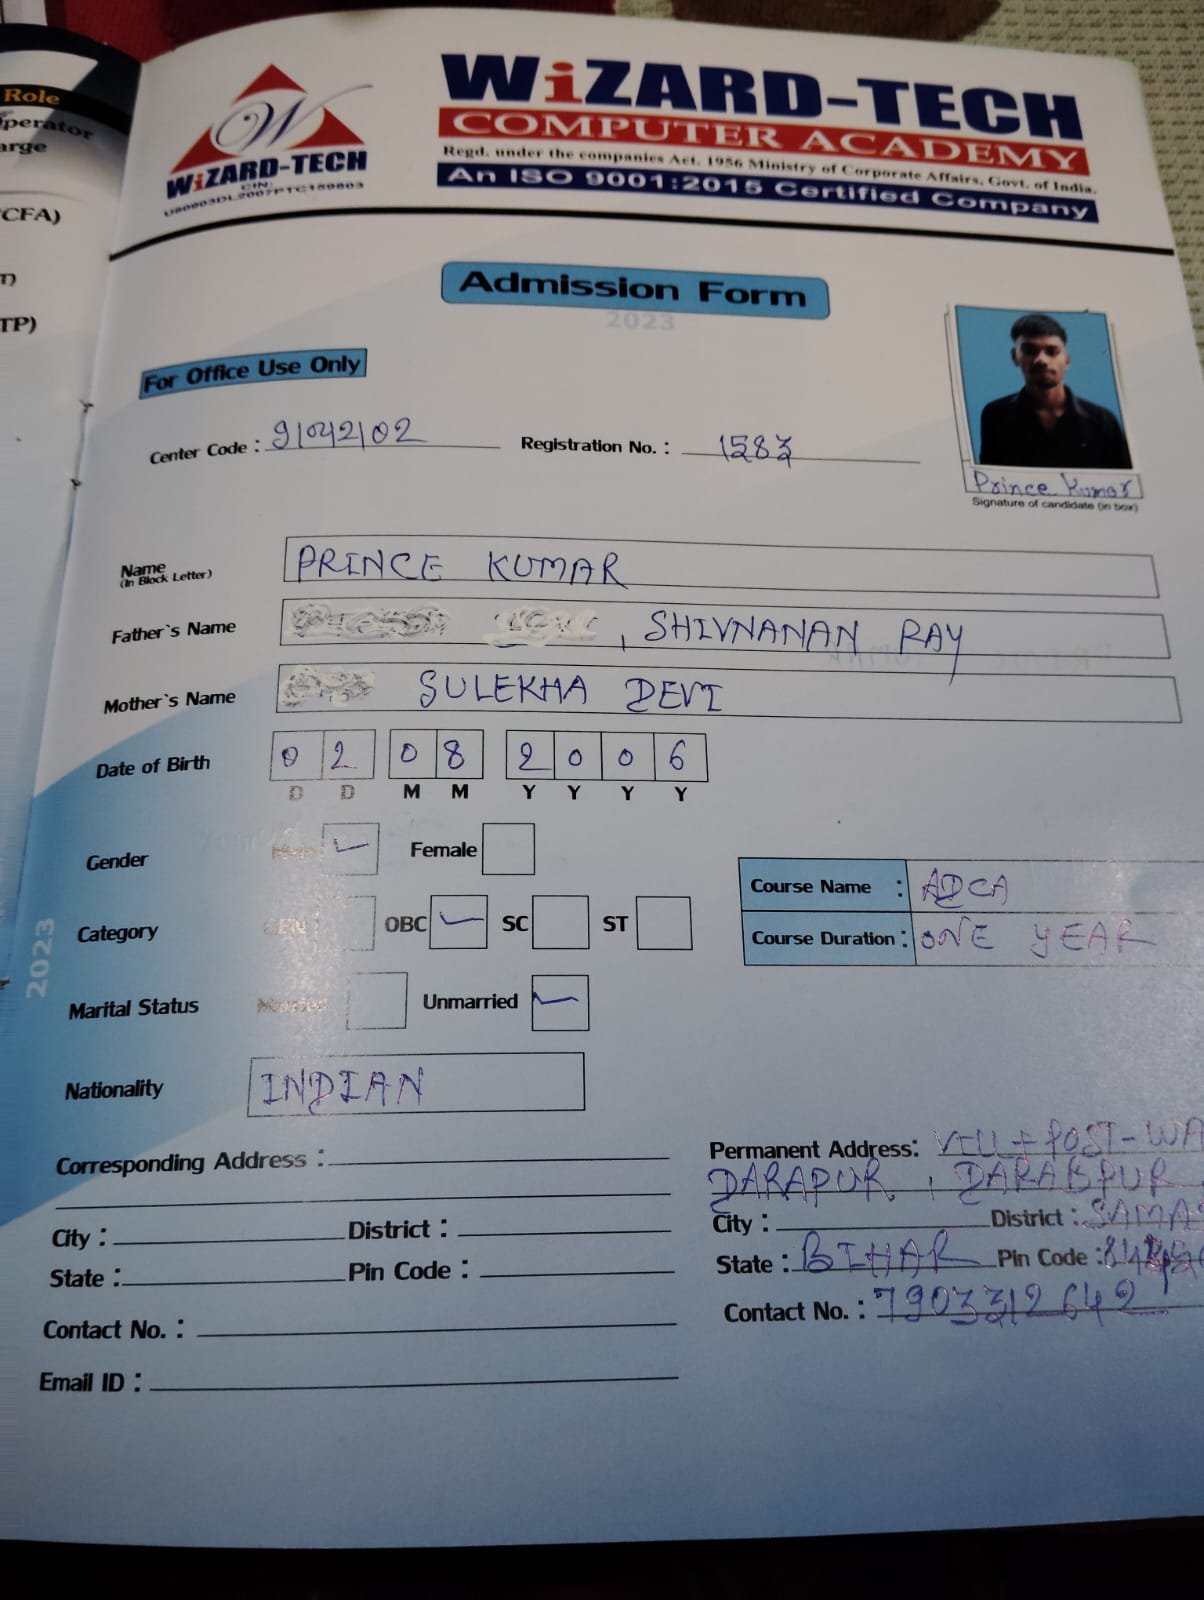 Role
Operator
arge
CFA)
TP)
W
WiZARD-TECH
CIN:
WiZARD-TECH
COMPUTER ACADEMY
Regd. under the companies Act. 1956 Ministry of Corporate Affairs, Govt. of India.
An ISO 9001:2015 Certified Company
Admission Form
2023
For Office Use Only
Center Code : 91042102 Registration No. : 1583
Prince Kumar
Signature of candidate (in box)
Name PRINCE KUMAR
(In Block Letter)
Father`s Name , SHIVNANAN RAY
Mother`s Name SULEKHA DEVI
Date of Birth 02 08 2006
D D M M Y Y Y Y
Gender Male Female
Course Name : ADCA
Category GEN OBC SC ST
Course Duration : ONE YEAR
2023
Marital Status Married Unmarried
Nationality INDIAN
Corresponding Address :
Permanent Address: VILL + POST - WA
DARAPUR , DARABPUR
City : District :
City : District : SAMAS
State : Pin Code :
State : BIHAR Pin Code :
Contact No. :
Contact No. : 7903312642
Email ID :